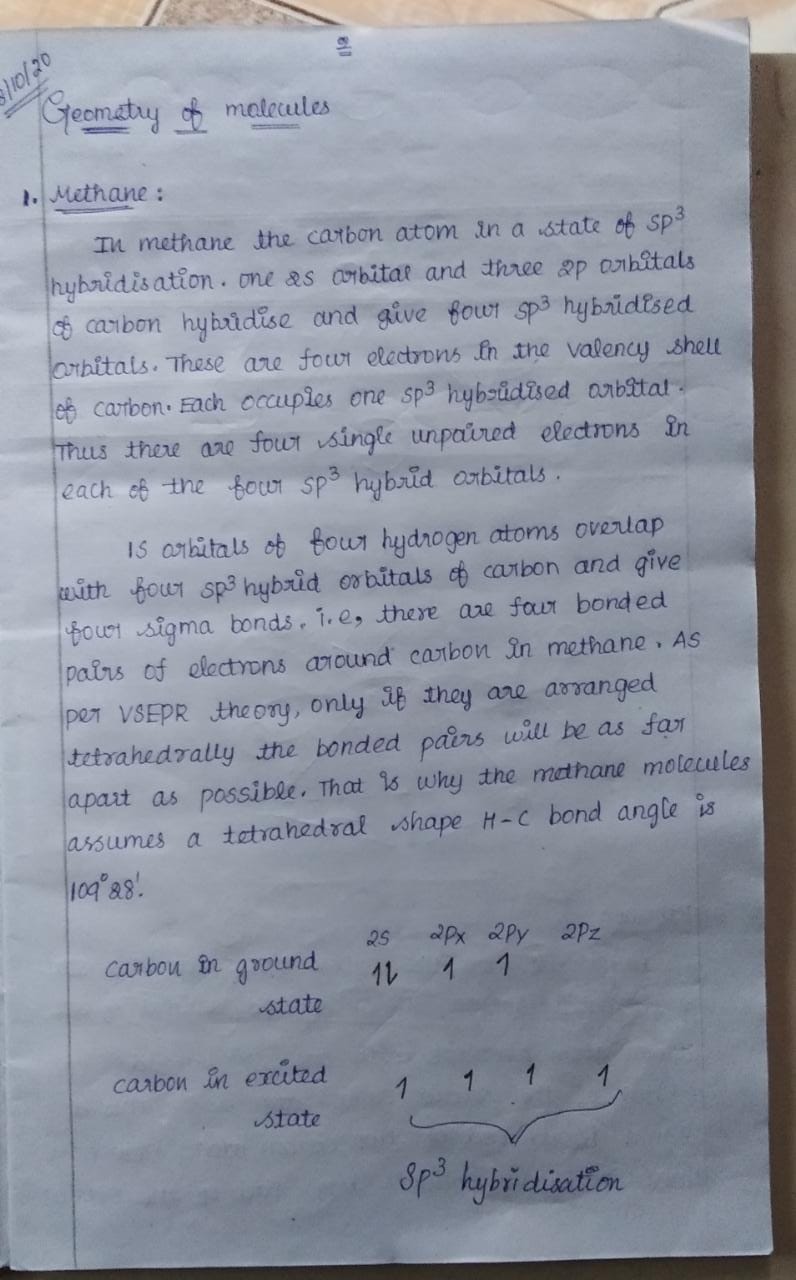 /10/20
Geometry of molecules
1. Methane :
In methane the carbon atom in a state of sp³
hybridisation. one 2s orbital and three 2p orbitals
of carbon hybridise and give four sp³ hybridised
orbitals. These are four electrons in the valency shell
of carbon. Each occupies one sp³ hybridised orbital.
Thus there are four single unpaired electrons in
each of the four sp³ hybrid orbitals.
1S orbitals of four hydrogen atoms overlap
with four sp³ hybrid orbitals of carbon and give
four sigma bonds. i.e, there are four bonded
pairs of electrons around carbon in methane. As
per VSEPR theory, only if they are arranged
tetrahedrally the bonded pairs will be as far
apart as possible. That is why the methane molecules
assumes a tetrahedral shape H-C bond angle is
109°28'.
2S 2Px 2Py 2Pz
carbon in ground 1l 1 1
state
carbon in excited 1 1 1 1
state
Sp³ hybridisation